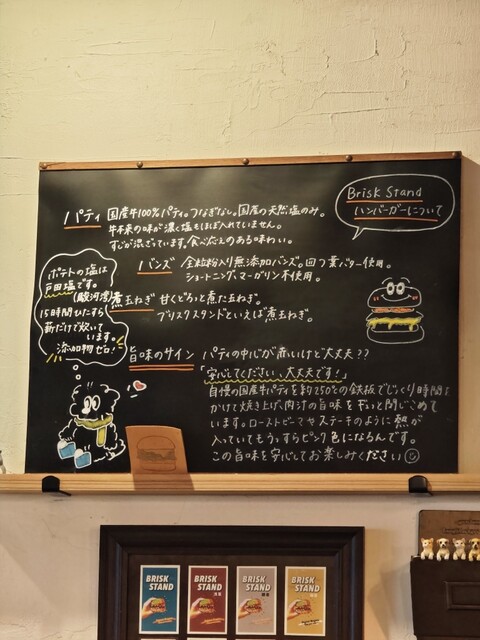 Brisk Stand
ハンバーガーについて
パティ 国産牛100%パティ。つなぎなし。国産の天然塩のみ。
牛本来の味が濃く塩もほぼ入れていません。
すじが混ざっています。食べごたえのある味わい。
バンズ 全粒粉入り無添加バンズ。四つ葉バター使用。
ショートニング、マーガリン不使用。
煮玉ねぎ 甘くとろっと煮た玉ねぎ。
ブリスクスタンドといえば煮玉ねぎ。
ポテトの塩は
戸田塩です。
(駿河湾)
15時間ひたすら
薪だけで炊いて
います。
添加物ゼロ!
旨味のサイン パティの中心が赤いけど大丈夫??
「安心してください、大丈夫です!」
自慢の国産牛パティを約250℃の鉄板でじっくり時間を
かけて焼き上げ、肉汁の旨味をギュっと閉じこめて
います。ローストビーフやステーキのように熱が
入っていてもうっすらピンク色になるんです。
この旨味を安心してお楽しみください
BRISK
STAND
BRISK
STAND
BRISK
STAND
BRISK
STAND